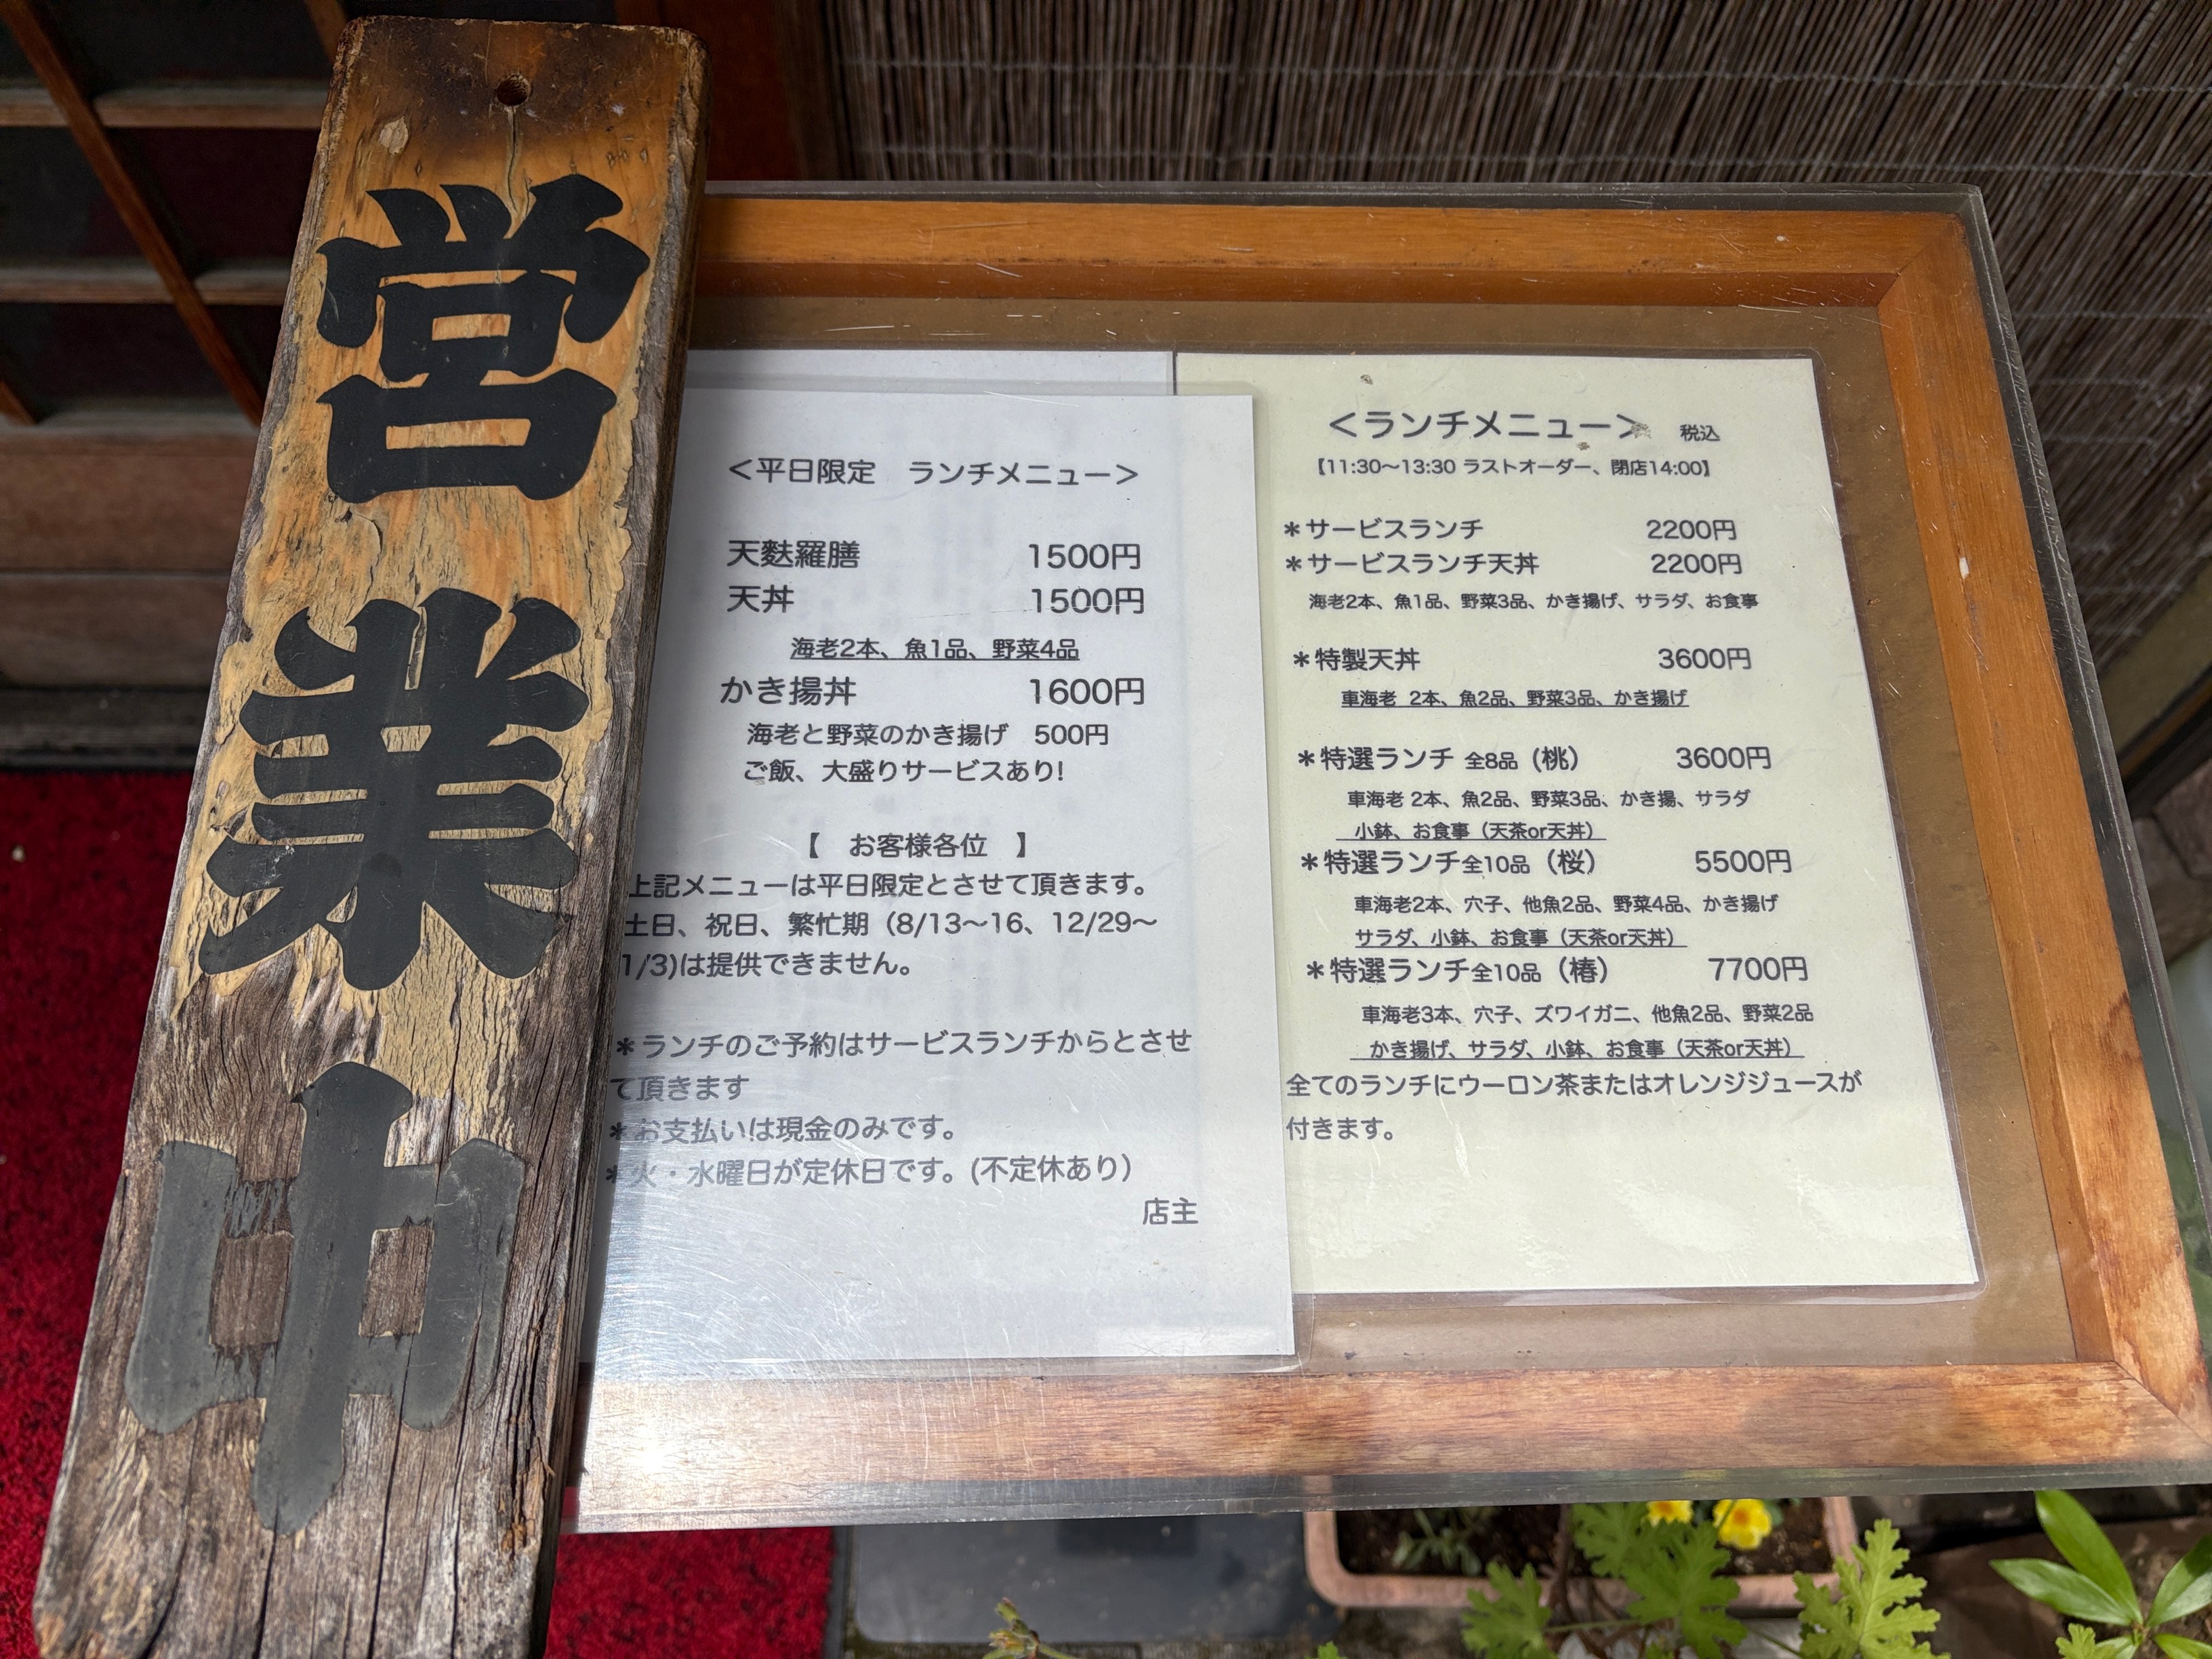 営業中
＜平日限定　ランチメニュー＞
天麩羅膳　1500円
天丼　1500円
海老2本、魚1品、野菜4品
かき揚丼　1600円
海老と野菜のかき揚げ　500円
ご飯、大盛りサービスあり!
【　お客様各位　】
上記メニューは平日限定とさせて頂きます。
土日、祝日、繁忙期（8/13〜16、12/29〜
1/3)は提供できません。
＊ランチのご予約はサービスランチからとさせ
て頂きます
＊お支払いは現金のみです。
＊火・水曜日が定休日です。(不定休あり）
店主
＜ランチメニュー＞　税込
【11:30〜13:30 ラストオーダー、閉店14:00】
＊サービスランチ　2200円
＊サービスランチ天丼　2200円
海老2本、魚1品、野菜3品、かき揚げ、サラダ、お食事
＊特製天丼　3600円
車海老 2本、魚2品、野菜3品、かき揚げ
＊特選ランチ 全8品（桃）　3600円
車海老 2本、魚2品、野菜3品、かき揚、サラダ
小鉢、お食事（天茶or天丼）
＊特選ランチ全10品（桜）　5500円
車海老2本、穴子、他魚2品、野菜4品、かき揚げ
サラダ、小鉢、お食事（天茶or天丼）
＊特選ランチ全10品（椿）　7700円
車海老3本、穴子、ズワイガニ、他魚2品、野菜2品
かき揚げ、サラダ、小鉢、お食事（天茶or天丼）
全てのランチにウーロン茶またはオレンジジュースが
付きます。